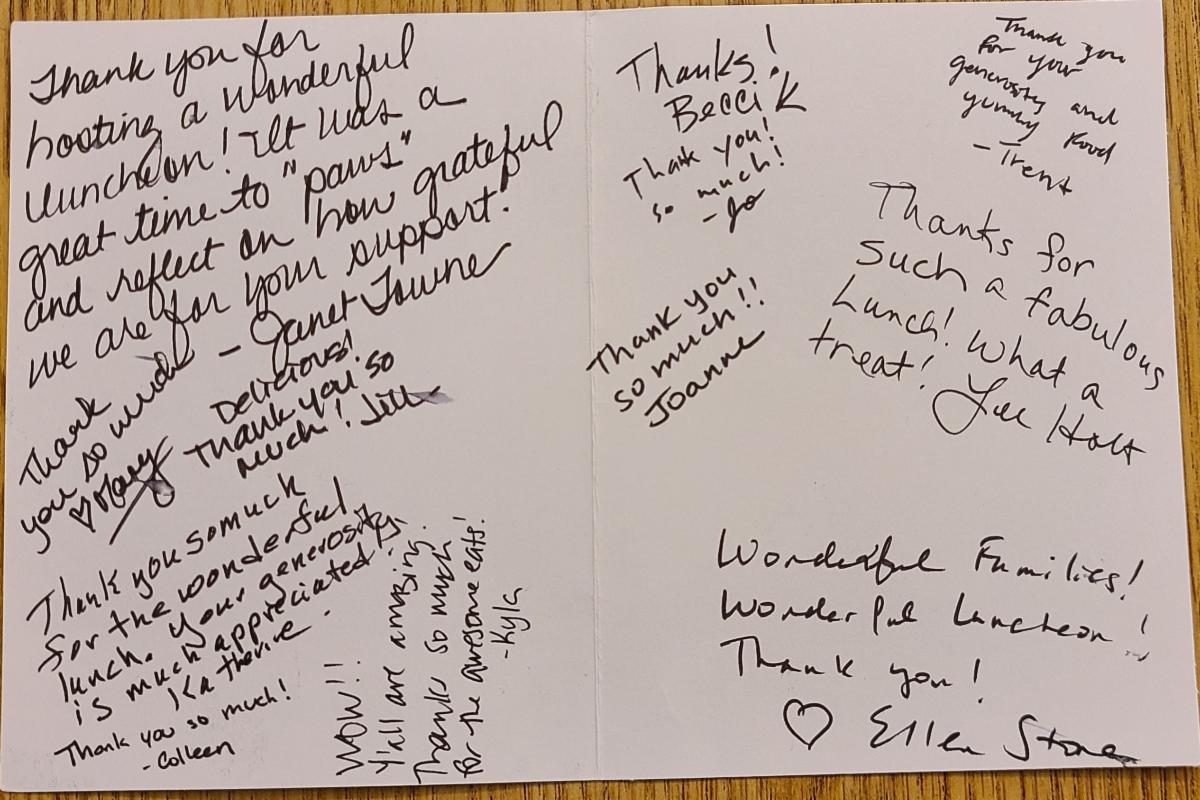 Thank you for
hosting a wonderful
luncheon! It was a
great time to "paws"
and reflect on how grateful
we are for your support.
- Janet Towne
Thank
you so much
♡ Mary
Delicious!
Thank you so
much! Jill
Thank you so much
for the wonderful
lunch. Your generosity
is much appreciated!
Katherine
Thank you so much!
- Colleen
WOW!!
Y'all are amazing.
Thanks so much
for the awesome eats!
- Kyla
Thanks!
Becci K
Thank you!
so much!
- Jo
Thank you
for your
generosity and
yummy food
- Trent
Thanks for
such a fabulous
Lunch! What a
treat!
Holt
Thank you
so much!!
Joanne
Wonderful Families!
Wonderful Luncheon!
Thank you!
♡ Ellen Stone